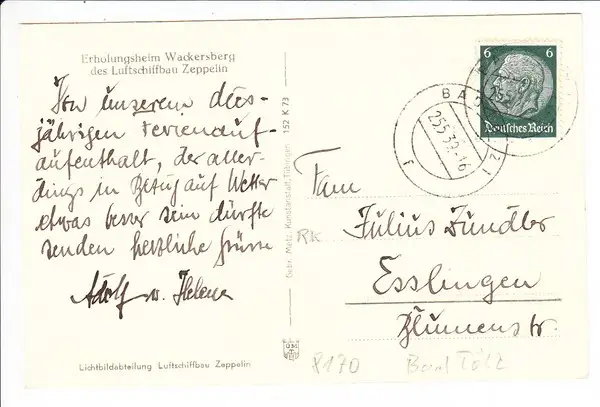 Erholungsheim Wackersberg
des Luftschiffbau Zeppelin
Von unserem dies-
jährigen Ferienauf-
aufenthalt, der aller-
dings in Bezug auf Wetter
etwas besser sein dürfte
senden herzliche Grüsse
Adolf u. Helene
Lichtbildabteilung Luftschiffbau Zeppelin
Gebr. Metz, Kunstanstalt, Tübingen 152 K 73
6 6
Deutsches Reich
BAD
25.5.39.-16
f
Fam
Julius Zündler
Esslingen
Blumenstr.
RK
8170 Bad Tölz